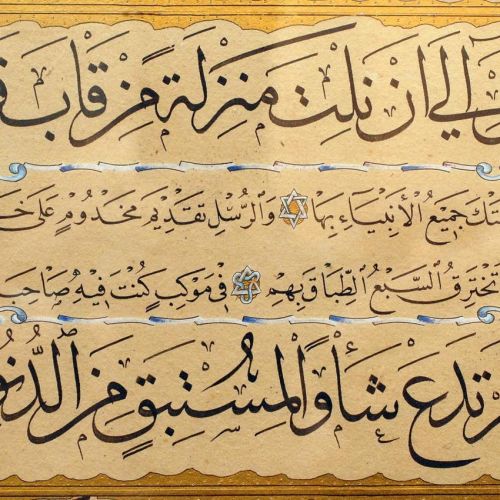 اِلٰي اَنْ نِلْتَ مَنْزِلَةً مِنْ قَابِ
جَمِيعُ الْأَنْبِيَاءِ بِهَا وَالرُّسْلِ تَقْدِيمَ مَخْدُومٍ عَلٰى
تَخْتَرِقُ السَّبْعَ الطِّبَاقَ بِهِمْ فِي مَوْكِبٍ كُنْتَ فِيهِ صَاحِبَ
تَدَعْ شَأْوًا لِمُسْتَبِقٍ مِنَ